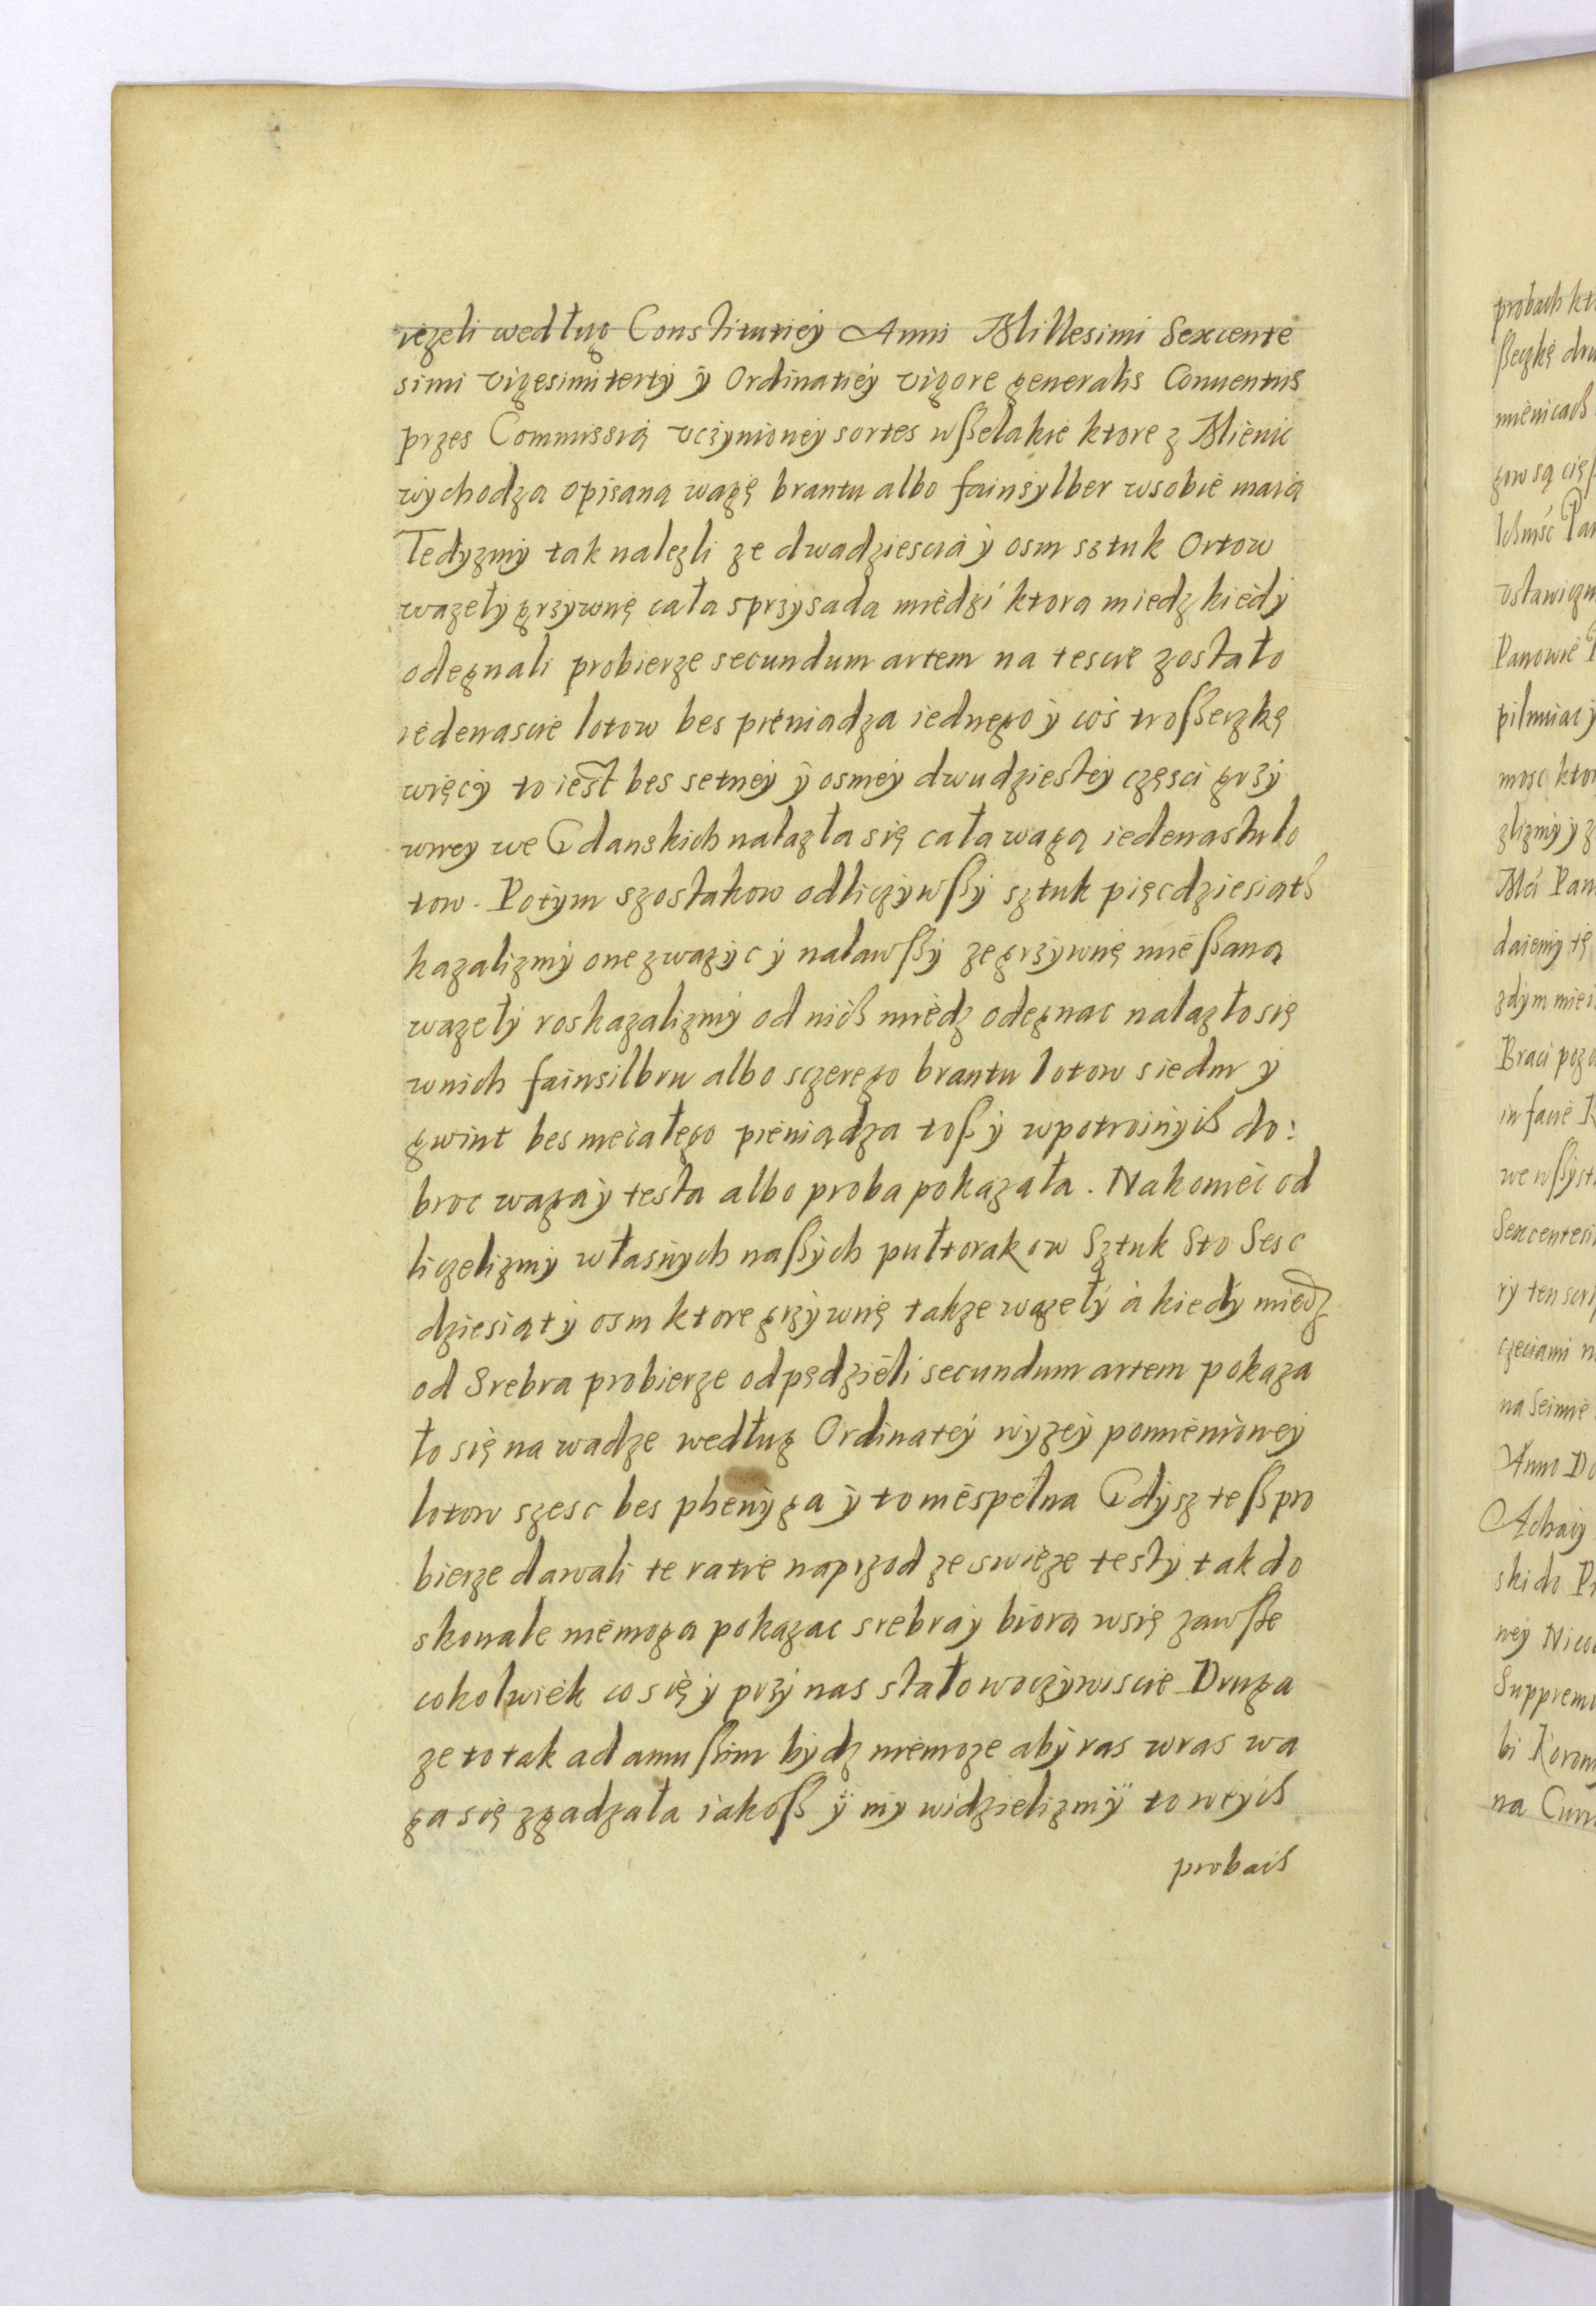 iezeli według Constitutiey Anni Millesimi Sexcente
simi vigesimi tertÿ ÿ Ordinatiey vigore generalis Conuentus
przes Commissią vczynioney sortes wßelakie ktore z Mienic
wychodza opisaną wagę brantu albo fainsylber wsobie maią
Tedyzmy tak nalezli ze dwadziescia y osm sztuk Ortow
wazeły grzywnę cała sprzysada miedzi ktora miedz kiedy
odegnali probierze secundum artem na tescie zostało
iedenascie lotow bes pieniadza iednego y coś troßeczkę
więcy to iest bes setney ÿ osmey dwudziestey częsci grzy
wney we Gdanskich nalazła się cała waga iedenastu lo
tow. Potym szostakow odliczywßy sztuk pięcdziesiąth
kazalizmy one zwazyc y nalawßy ze grzywnę mießaną
wazeły roskazalizmy od nich miedz odegnac nalazło się
wnich fainsilbru albo sczerego brantu lotow siedm y
gwint bes niecałego pieniądza toß y wpotroinych do:
broc waga y testa albo proba pokazała. Nakoniec od
liczelizmy własnych naßych pułtorakow Sztuk Sto Sesc
dziesiąt y osm ktore grzywnę takze wazeły à kiedy miedz
od Srebra probierze odpędzieli secundum artem pokaza
ło się na wadze według Ordinatey wyzey pomienioney
lotow szesc bes phenyga y to niespełna Gdysz teß pro
bierze dawali te ratie naprzod ze swieze testy tak do
skonale niemoga pokazac srebra y biora wsię zawße
cokolwiek co się y przy nas stało woczywiscie Druga
ze to tak ad amußim bydz niemoze aby ras wras wa
ga się zgadzała iakoß ÿ my widzielizmÿ to wtych
probach
probach kt
ßeczkę dru
mienicach
gow są cięß
Ichmść Pan
vstawiczn
Panowie
pilnuiac y
mosc ktor
zlizmy y z
Mći Pan
daiemy tę
zdym miei
Braci poza
in facie R
we wßyst
Sexcentesi
ry ten scri
czeciami n
na Seimie
Anno Do
Achacy
ski do Pr
ney Nico
Suppremi
bi Koron
na Cum